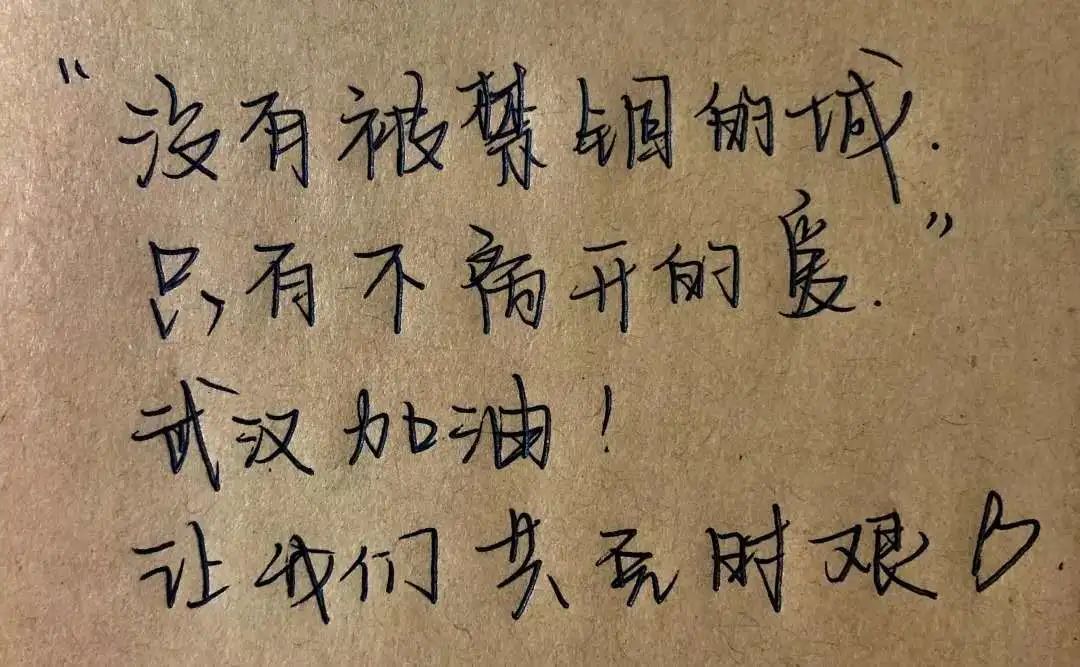 “没有被禁锢的城.
只有不离开的爱.”
武汉加油!
让我们共克时艰